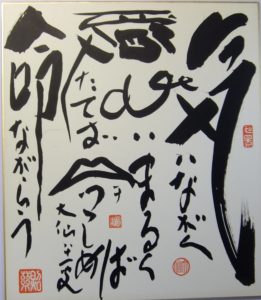 気はながく
心はまるく
腹たてず
口つゝしめば
命ながらう